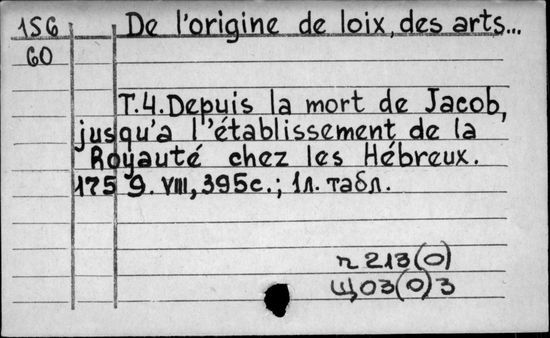 156 De l'origine de loix, des arts...
60
T.4. Depuis la mort de Jacob,
jusqu'a l'établissement de la
Royauté chez les Hébreux.
1759. VIII, 395с.; 1л. табл.
п 213(0)
Щ03(0)3